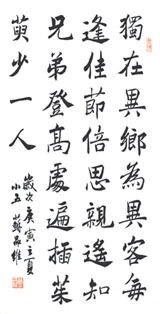 獨在異鄉為異客每
逢佳節倍思親遙知
兄弟登高處遍插茱
萸少一人
歲次庚寅立夏